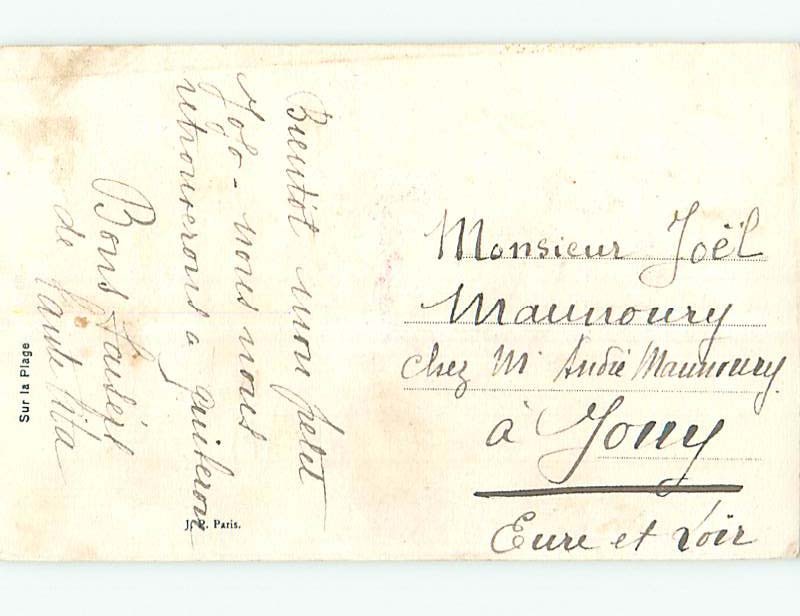 Bientôt mon petit
Jojo - nous nous
retrouverons a Quiberon
Bons Baisers
de Tante Rita
Monsieur Joël
Maunoury
chez Mr André Maunoury
à Jouy
Eure et Loir
Sur la Plage
J. P. Paris.